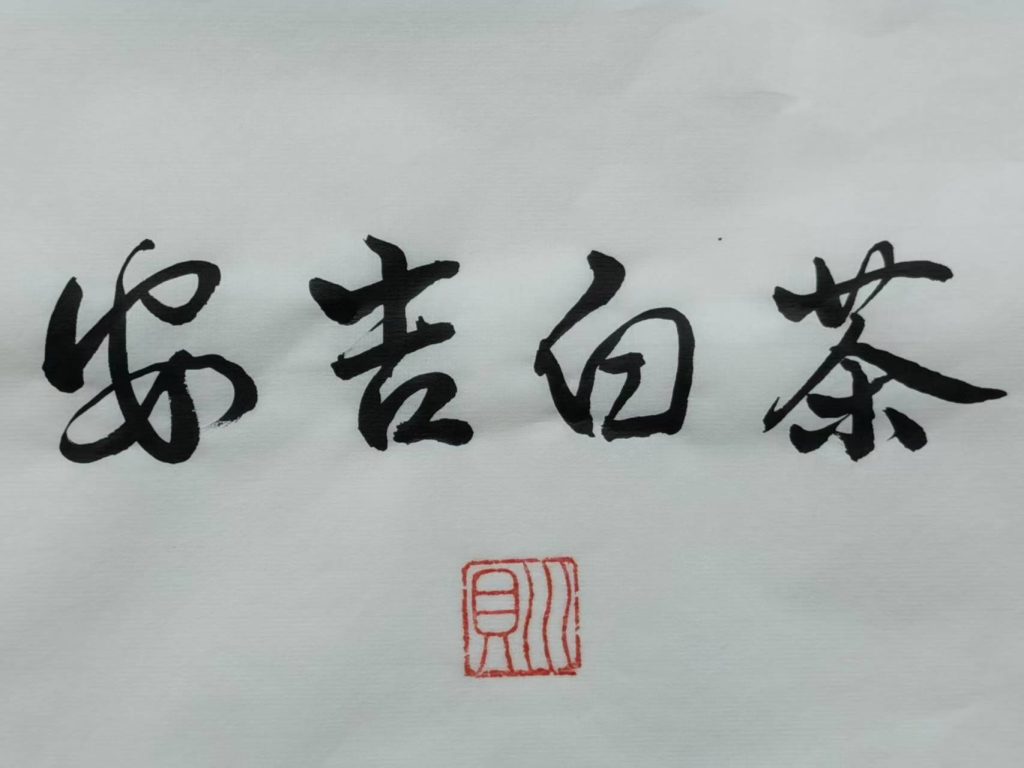 安吉白茶